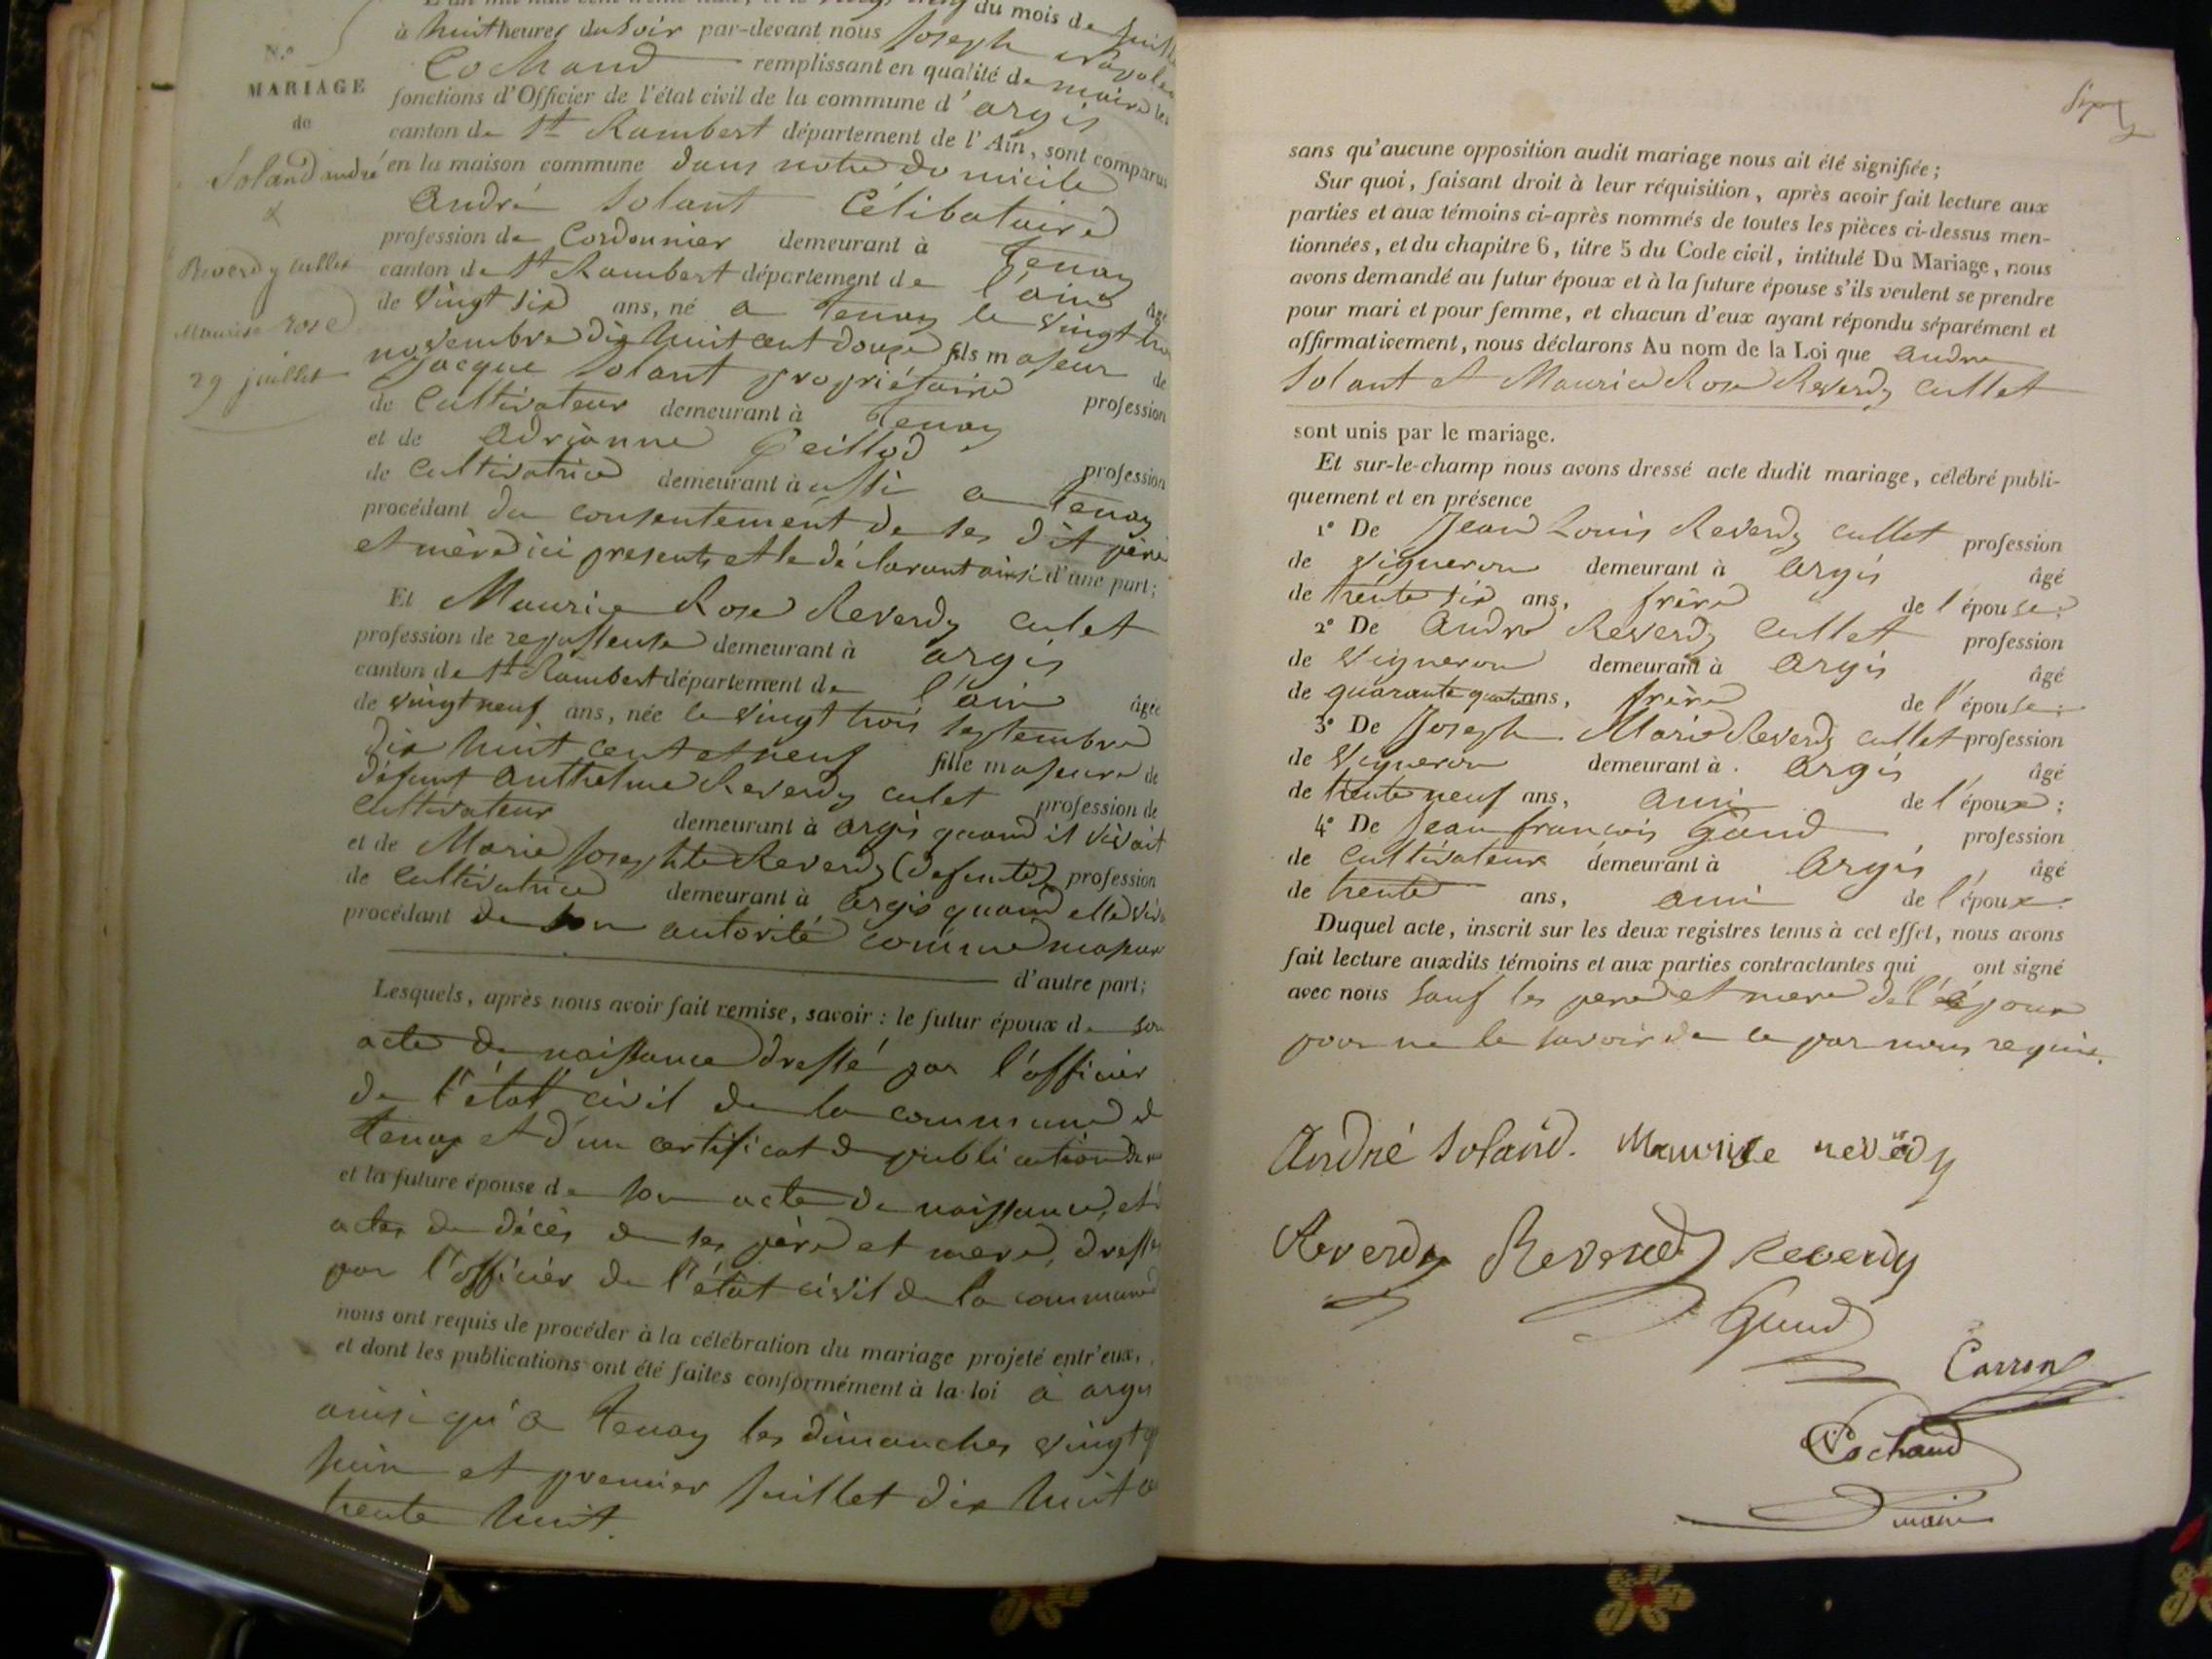 du mois de
à huit heures du soir par-devant nous Joseph
N.º
Cochand remplissant en qualité de maire les
MARIAGE
fonctions d'Officier de l'état civil de la commune d'argis
de
canton de St Rambert département de l'Ain, sont comparus
Soland andré
en la maison commune dans notre domicile
&
André Solant Célibataire
profession de Cordonnier demeurant à Tenay
Reverdy cullet
canton de St Rambert département de l'ain âgé
de vingt six ans, né a Tenay le vingt
Maurise rose
novembre dix huit cent douze fils majeur de
29 juillet
Jacque Solant propriétaire profession
de Cultivateur demeurant à Tenay
et de Adrianne profession
de Cultivatrice demeurant à ussi a Tenay
procédant du consentement de ses dit père
et mère ici presents et le déclarant ainsi d'une part;
Et Maurise Rose Reverdy culet
profession de repasseuse demeurant à argis
canton de St Rambert département de l'ain âgée
de vingt neuf ans, née le vingt trois septembre
dix huit cent et neuf fille majeure de
défunt Anthelme Reverdy culet profession de
cultivateur demeurant à argis quand il vivait
et de Marie Josephte Reverdy (defunte) profession
de cultivatrice demeurant à argis quand elle
procédant de son autorité comme majeur
d'autre part;
Lesquels, après nous avoir fait remise, savoir : le futur époux de son
acte de naissance dressé par l'officier
de l'état civil de la commune de
tenay et d'un certificat de publication
et la future épouse de son acte de naissance, et
actes de décès de ses père et mere, dressés
par l'officier de l'état civil de la commune
nous ont requis de procéder à la célébration du mariage projeté entr'eux,
et dont les publications ont été faites conformément à la loi à argis
ainsi qu'a tenay les dimanches vingt
juin et premier juillet dix huit
trente huit.
sans qu'aucune opposition audit mariage nous ait été signifiée;
Sur quoi, faisant droit à leur réquisition, après avoir fait lecture aux
parties et aux témoins ci-après nommés de toutes les pièces ci-dessus men-
tionnées, et du chapitre 6, titre 5 du Code civil, intitulé Du Mariage, nous
avons demandé au futur époux et à la future épouse s'ils veulent se prendre
pour mari et pour femme, et chacun d'eux ayant répondu séparément et
affirmativement, nous déclarons Au nom de la Loi que andre
Solant et Maurise Rose Reverdy cullet
sont unis par le mariage.
Et sur-le-champ nous avons dressé acte dudit mariage, célébré publi-
quement et en présence
1º De Jean Louis Reverdy cullet profession
de vigneron demeurant à Argis âgé
de trente six ans, frère de l'épouse;
2º De André Reverdy cullet profession
de vigneron demeurant à Argis âgé
de quarante quatre ans, frère de l'épouse;
3º De Joseph Marie Reverdy cullet profession
de vigneron demeurant à Argis âgé
de trente neuf ans, ami de l'époux;
4º De Jean francois Gaud profession
de cultivateur demeurant à Argis âgé
de trente ans, ami de l'époux.
Duquel acte, inscrit sur les deux registres tenus à cet effet, nous avons
fait lecture auxdits témoins et aux parties contractantes qui ont signé
avec nous sauf les pere et mere de l'époux
pour ne le savoir de ce par nous requis.
André Soland. Maurise reverdy
Reverdy Reverdy Reverdy
Gaud
Carron
Cochand
maire